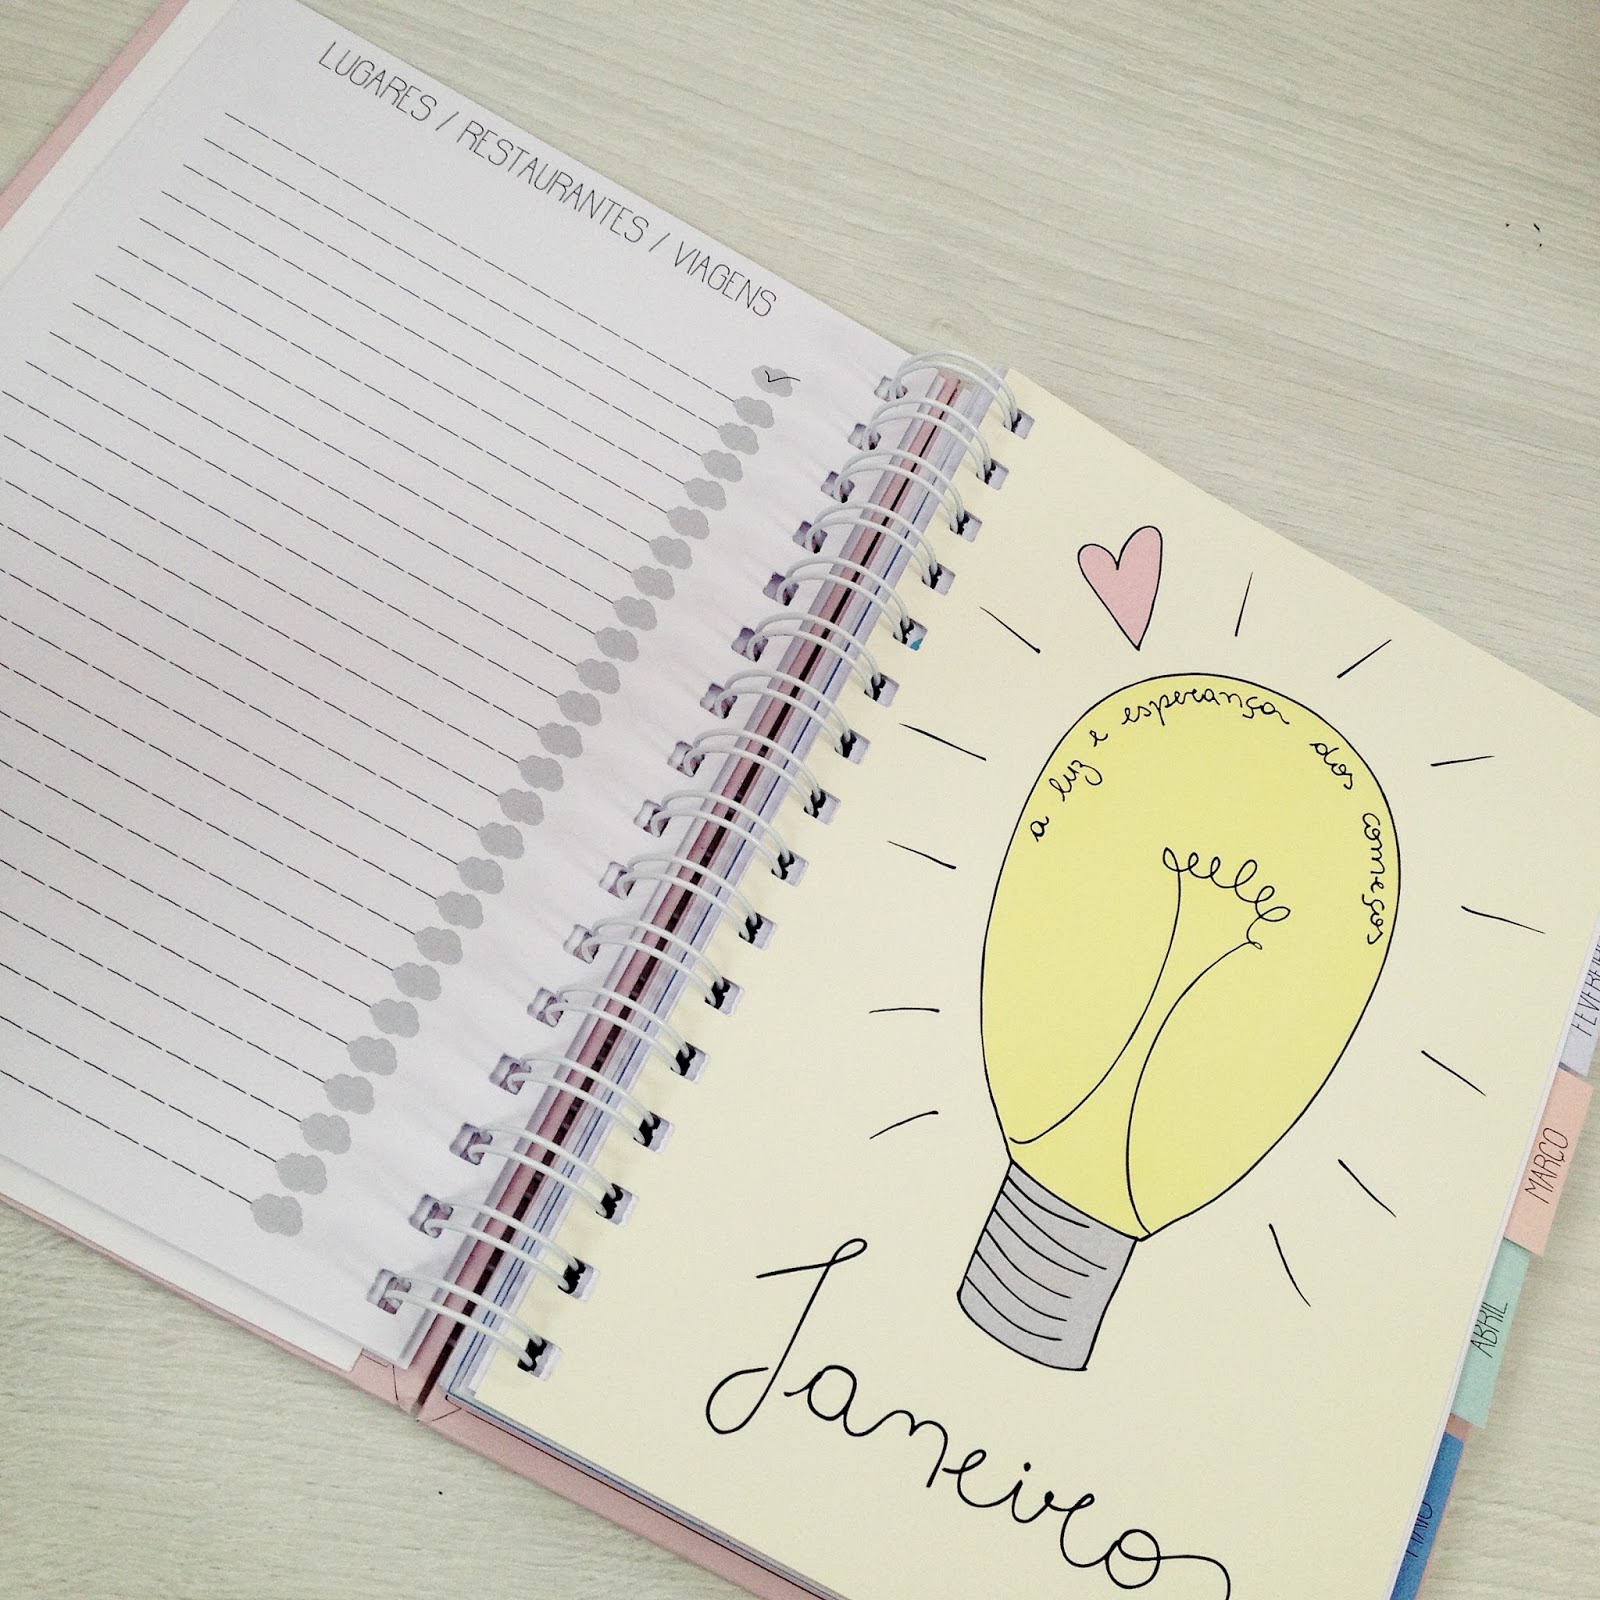 LUGARES / RESTAURANTES / VIAGENS
a luz e esperança dos começos
Janeiro
FEVEREIRO
MARÇO
ABRIL
MAIO